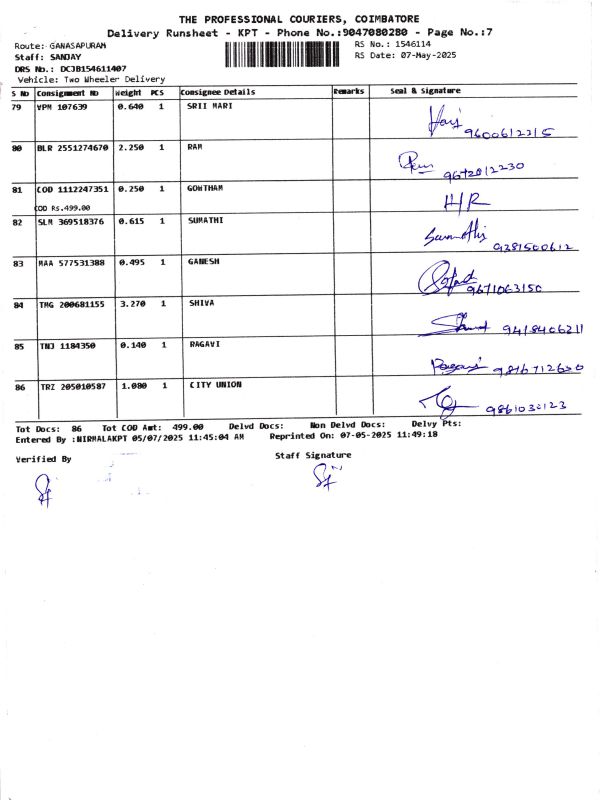 THE PROFESSIONAL COURIERS, COIMBATORE
Delivery Runsheet - KPT - Phone No.:9047080280 - Page No.:7
Route: GANASAPURAM
RS No.: 1546114
Staff: SANJAY
RS Date: 07-May-2025
DRS No.: DCJB154611407
Vehicle: Two Wheeler Delivery
S No Consignment No Weight PCS Consignee Details Remarks Seal & Signature
79 VPM 107639 0.640 1 SRII MARI
Hari 9600612315
80 BLR 2551274670 2.250 1 RAM
Ram 9672812230
81 COD 1112247351 0.250 1 GOWTHAM
H/R
COD Rs.499.00
82 SLM 369518376 0.615 1 SUMATHI
Sumathi 9381500612
83 MAA 577531388 0.495 1 GANESH
9671063150
84 TMG 200681155 3.270 1 SHIVA
9418406211
85 TNJ 1184350 0.140 1 RAGAVI
Ragavi 9816712600
86 TRZ 205010587 1.080 1 CITY UNION
9861032123
Tot Docs: 86 Tot COD Amt: 499.00 Delvd Docs: Non Delvd Docs: Delvy Pts:
Entered By :NIRMALAKPT 05/07/2025 11:45:04 AM Reprinted On: 07-05-2025 11:49:18
Verified By
Staff Signature